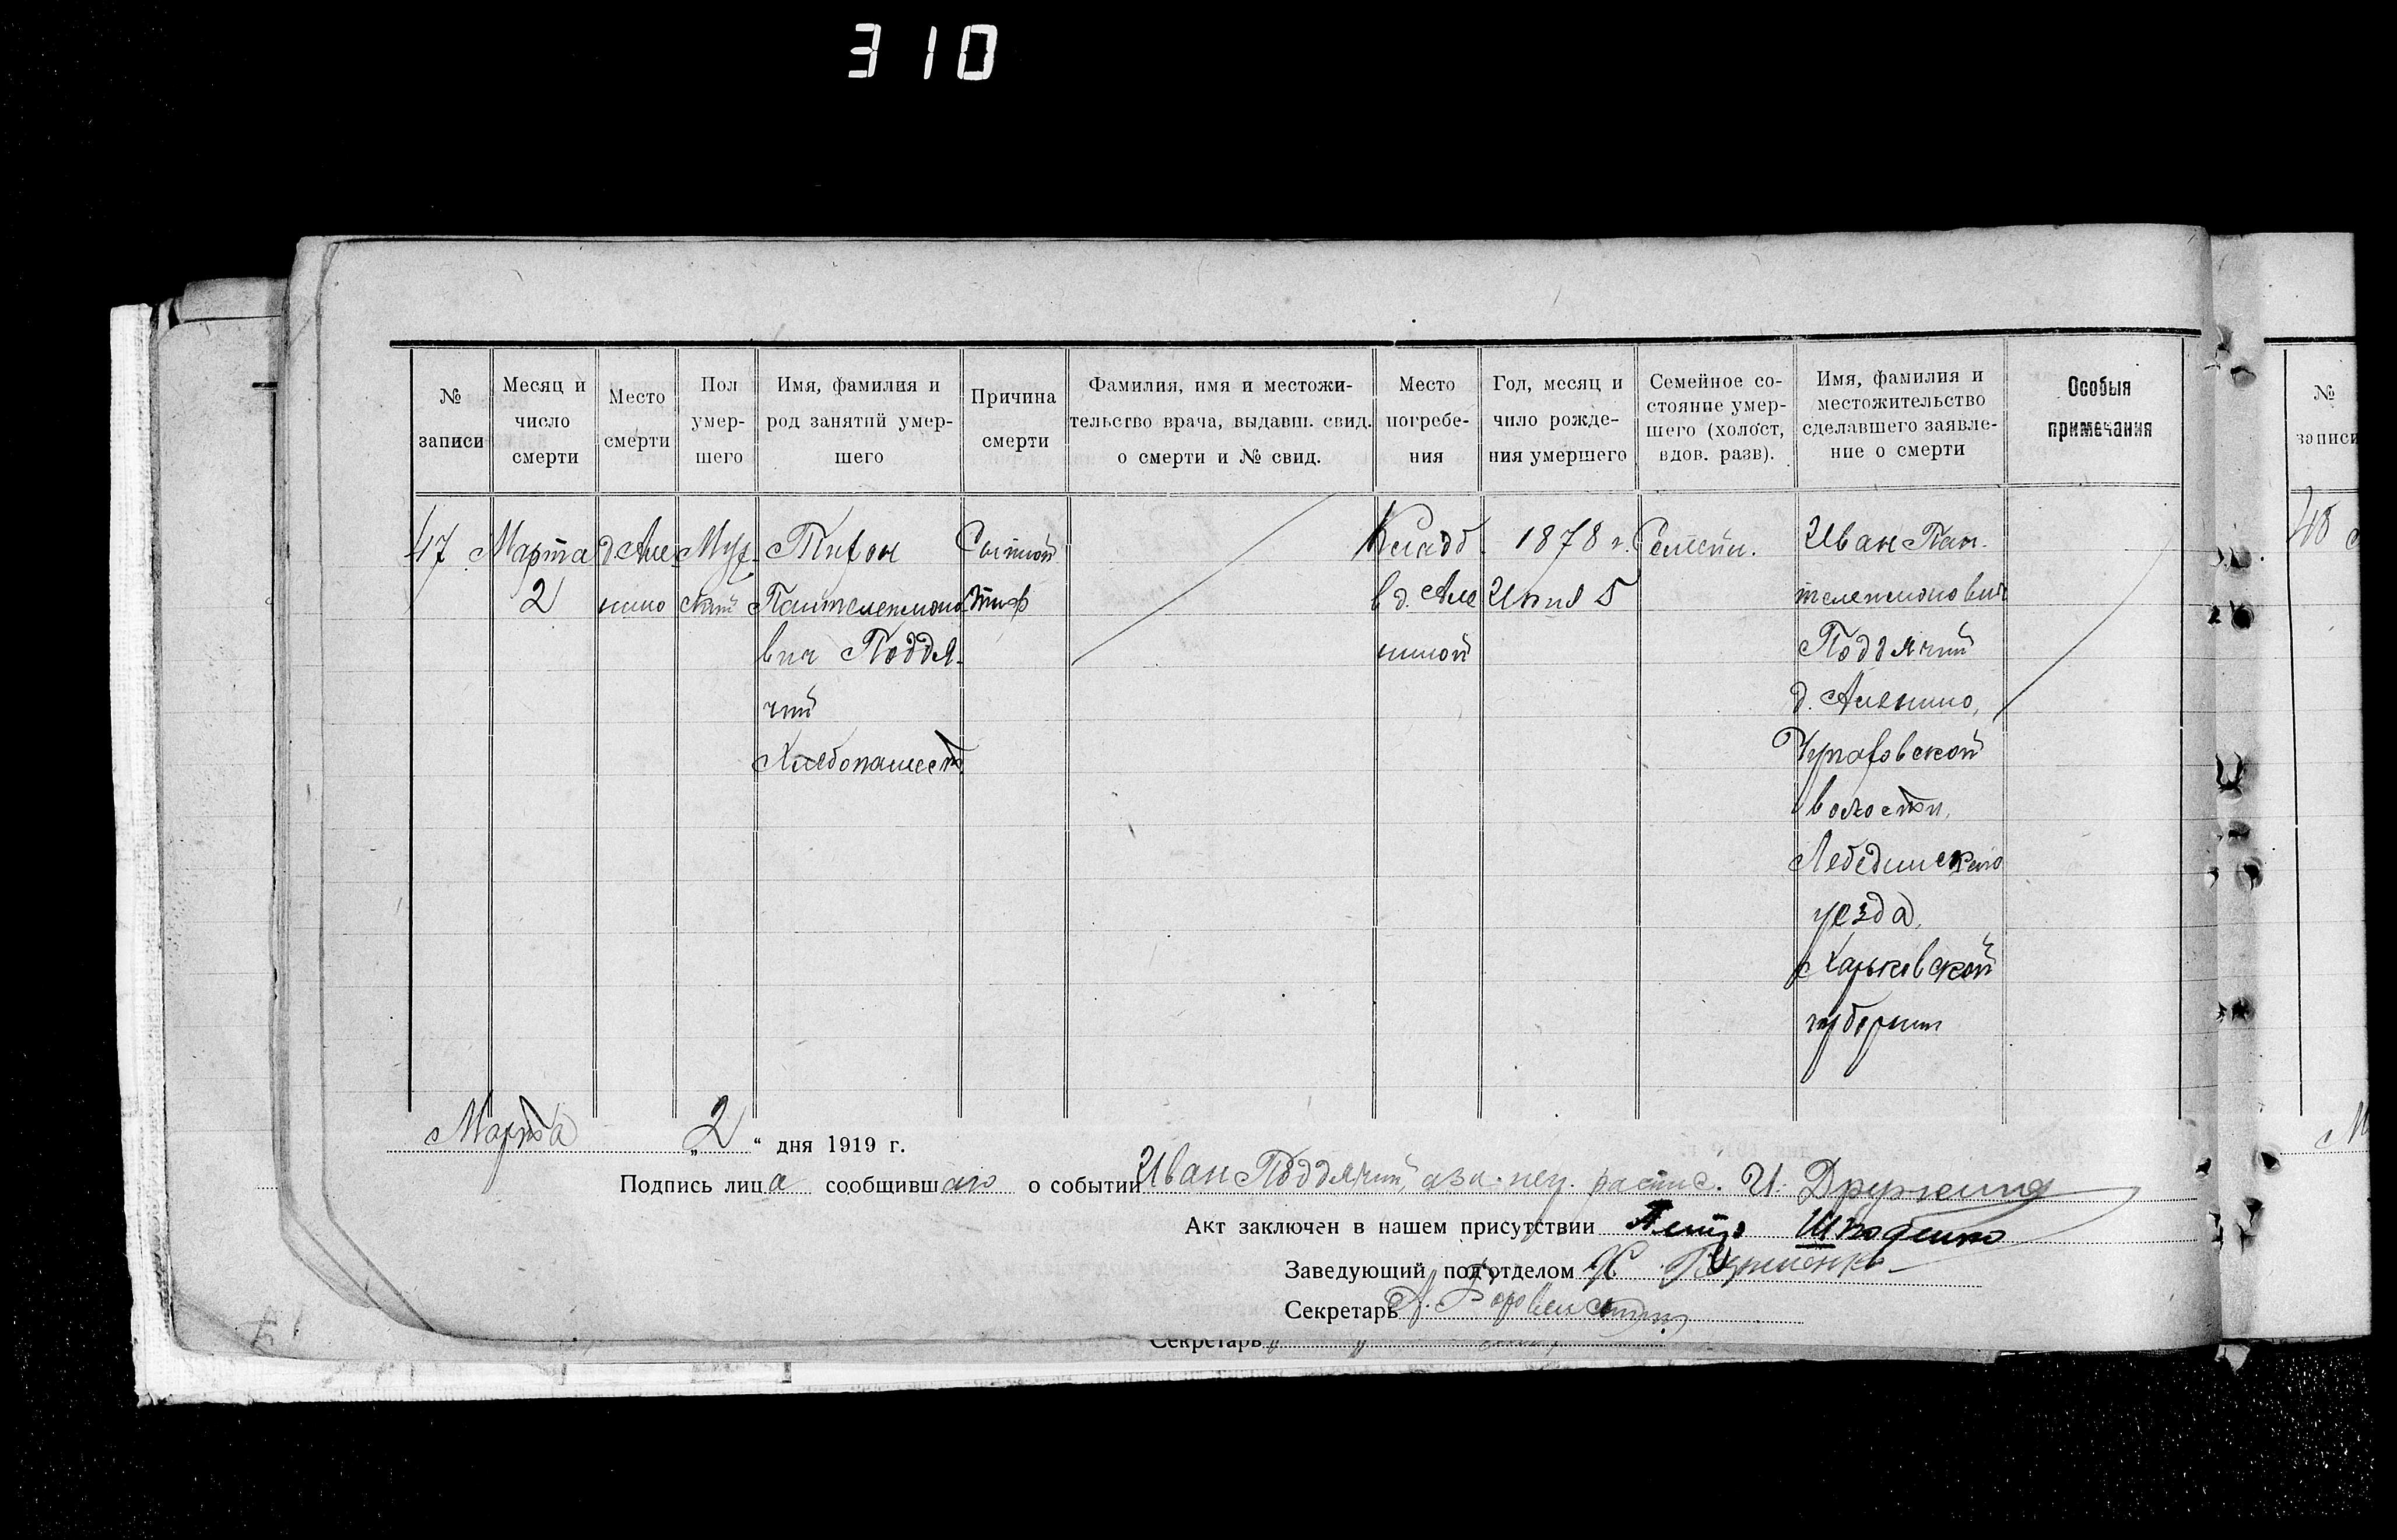 310
№ записи
Месяц и число смерти
Место смерти
Пол умер- шего
Имя, фамилия и род занятий умер- шего
Причина смерти
Фамилия, имя и местожи- тельство врача, выдавш. свид. о смерти и № свид.
Место погребе- ния
Год, месяц и чило рожде- ния умершего
Семейное со- стояние умер- шего (холост, вдов. разв).
Имя, фамилия и местожительство сделавшего заявле- ние о смерти
Особыя примечания
№ записи
47
Марта
2
д. Але
нино
Муж
ской
Тихон
Пантелеимоно
вич Поддя-
чий
Хлебопашест.
Сыпной
тиф
Кладб.
в д. Але
ниной
1878 г.
Июня 5
Семейн.
Иван Пан-
телеимонович
Поддячий
д. Аленино,
волости,
Лебединскаго
уезда,
Харьковской
губернии
48
Марта „ 2 “ дня 1919 г.
Подпись лица сообщившаго о событии Иван Поддячий, а за нег. распис. И.
Акт заключен в нашем присутствии Петр
Заведующий подотделом
Секретарь
Секретарь